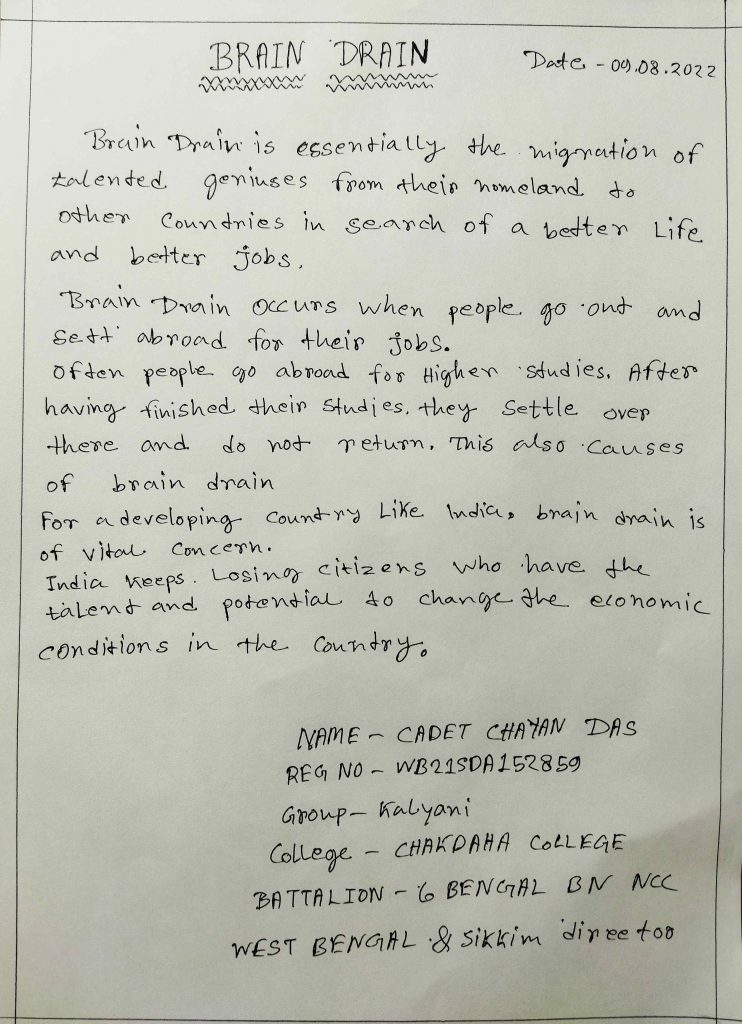 BRAIN DRAIN
Date - 09.08.2022
Brain Drain is essentially the migration of
talented geniuses from their homeland to
other Countries in search of a better Life
and better jobs.
Brain Drain occurs when people go out and
Sett abroad for their jobs.
often people go abroad for Higher studies. After
having finished their studies, they settle over
there and do not return. This also causes
of brain drain
For a developing Country Like India, brain drain is
of vital concern.
India keeps Losing citizens who have the
talent and potential to change the economic
conditions in the Country.
NAME - CADET CHAYAN DAS
REG NO - WB21SDA152859
Group - Kalyani
College - CHAKDAHA COLLEGE
BATTALION - 6 BENGAL BN NCC
WEST BENGAL & Sikkim